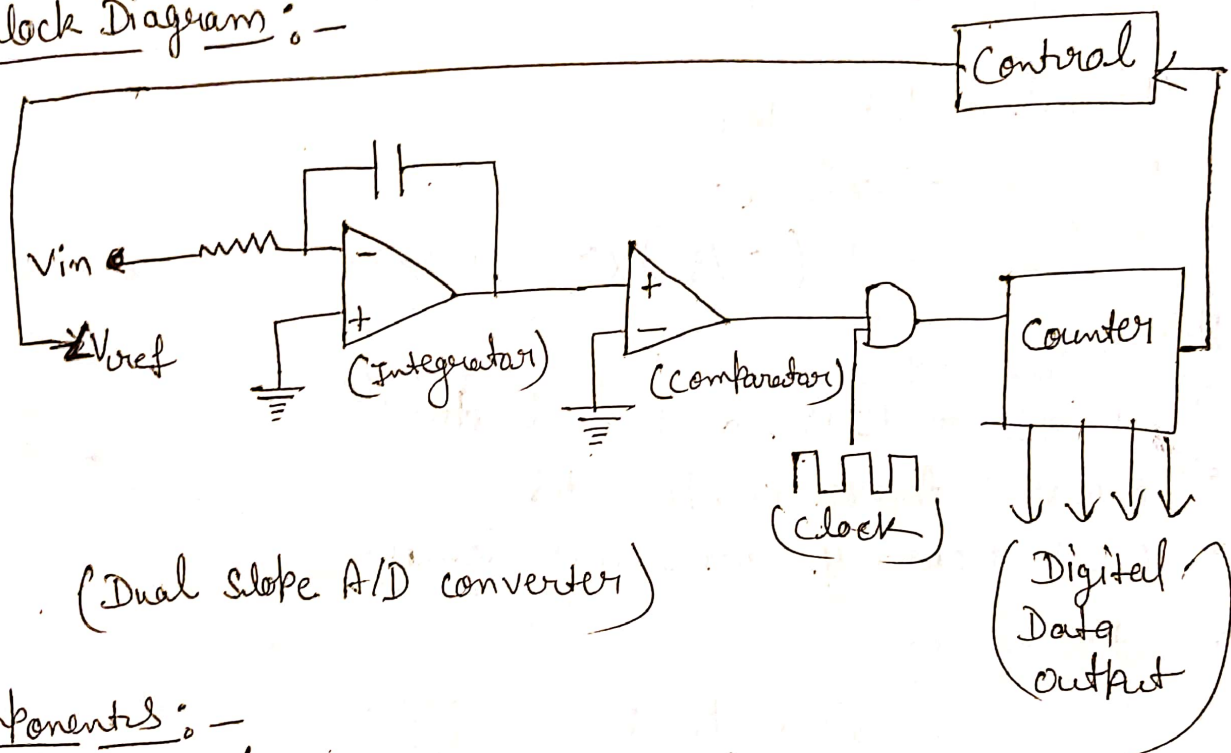 lock Diagram :-
Control
Vin
-
+
Vref
(Integrator)
+
-
(Comparator)
Counter
(Clock)
(Dual Slope A/D converter)
(Digital
Data
output
ponents :-